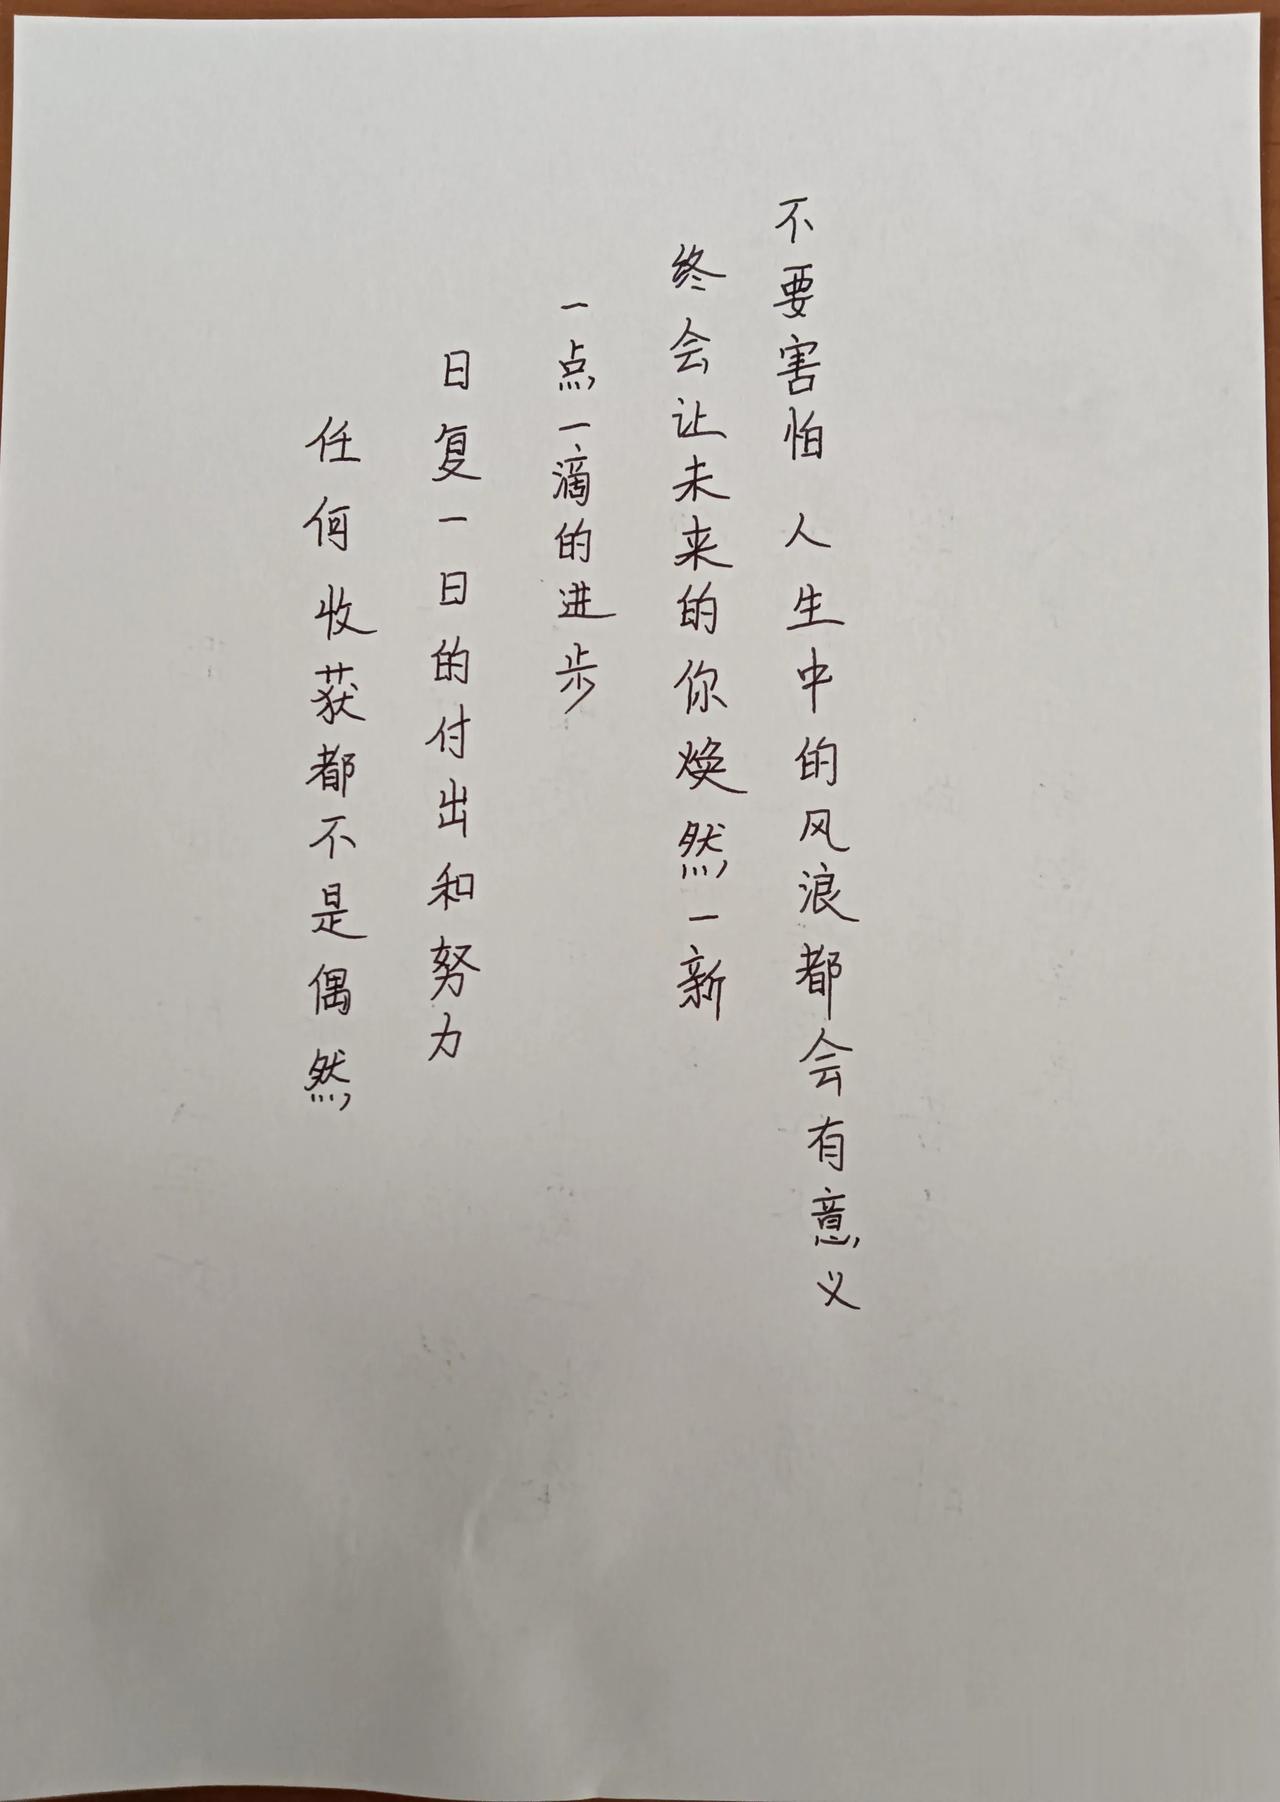 任何收获都不是偶然
日复一日的付出和努力
一点一滴的进步
终会让未来的你焕然一新
不要害怕 人生中的风浪都会有意义